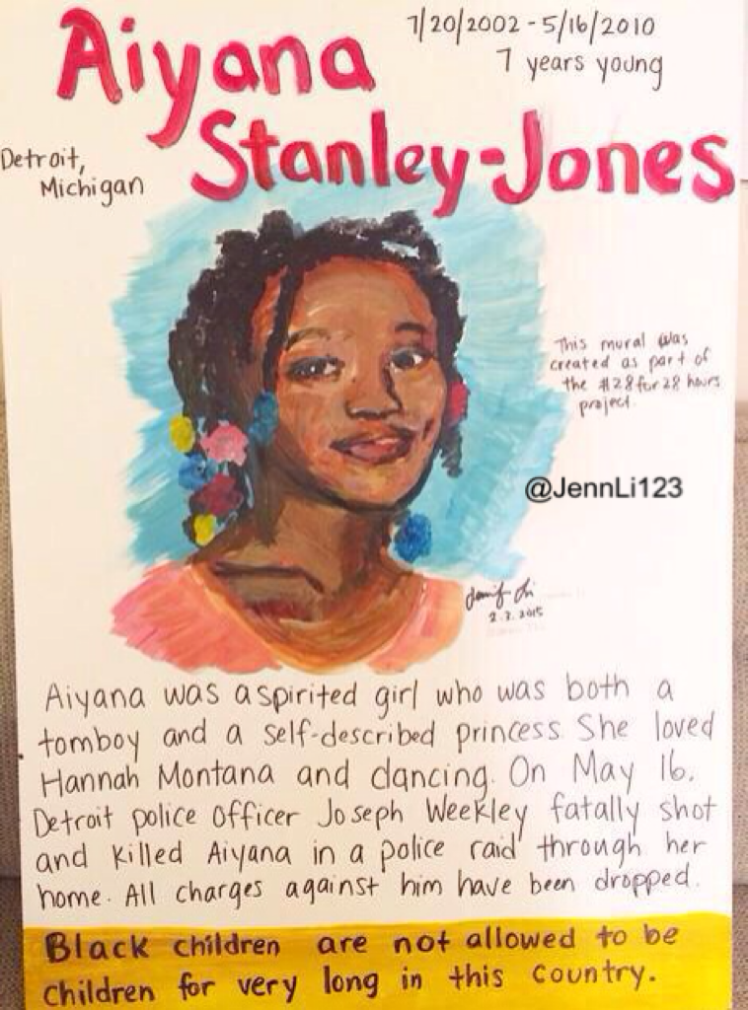 Aiyana
7/20/2002 - 5/16/2010
7 years young
Stanley-Jones
Detroit,
Michigan
This mural was
created as part of
the #28for28 hours
project.
@JennLi123
2.7.2015
Aiyana was a spirited girl who was both a
tomboy and a self-described princess. She loved
Hannah Montana and dancing. On May 16,
Detroit police officer Joseph Weekley fatally shot
and killed Aiyana in a police raid through her
home. All charges against him have been dropped.
Black children are not allowed to be
children for very long in this country.